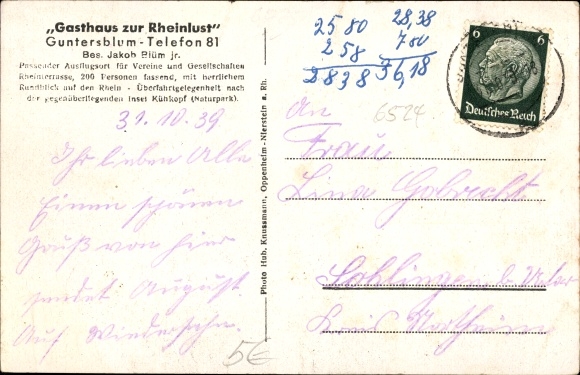 „Gasthaus zur Rheinlust"
Guntersblum - Telefon 81
Bes. Jakob Blüm jr.
Passender Ausflugsort für Vereine und Gesellschaften
Rheinterrasse, 200 Personen fassend, mit herrlichem
Rundblick auf den Rhein - Überfahrtgelegenheit nach
der gegenüberliegenden Insel Kühkopf (Naturpark).
31.10.39
Ihr lieben Alle
Einen schönen
Gruß von hier
sendet August.
Auf Wiedersehn.
5€
Photo Hub. Knussmann, Oppenheim-Nierstein a. Rh.
25 80
2 58
28 38
28,38
7 80
36,18
6 6
Deutsches Reich
6524
An
Frau
Lina Gobrecht
Sohlingen b. Uslar
Kreis Northeim